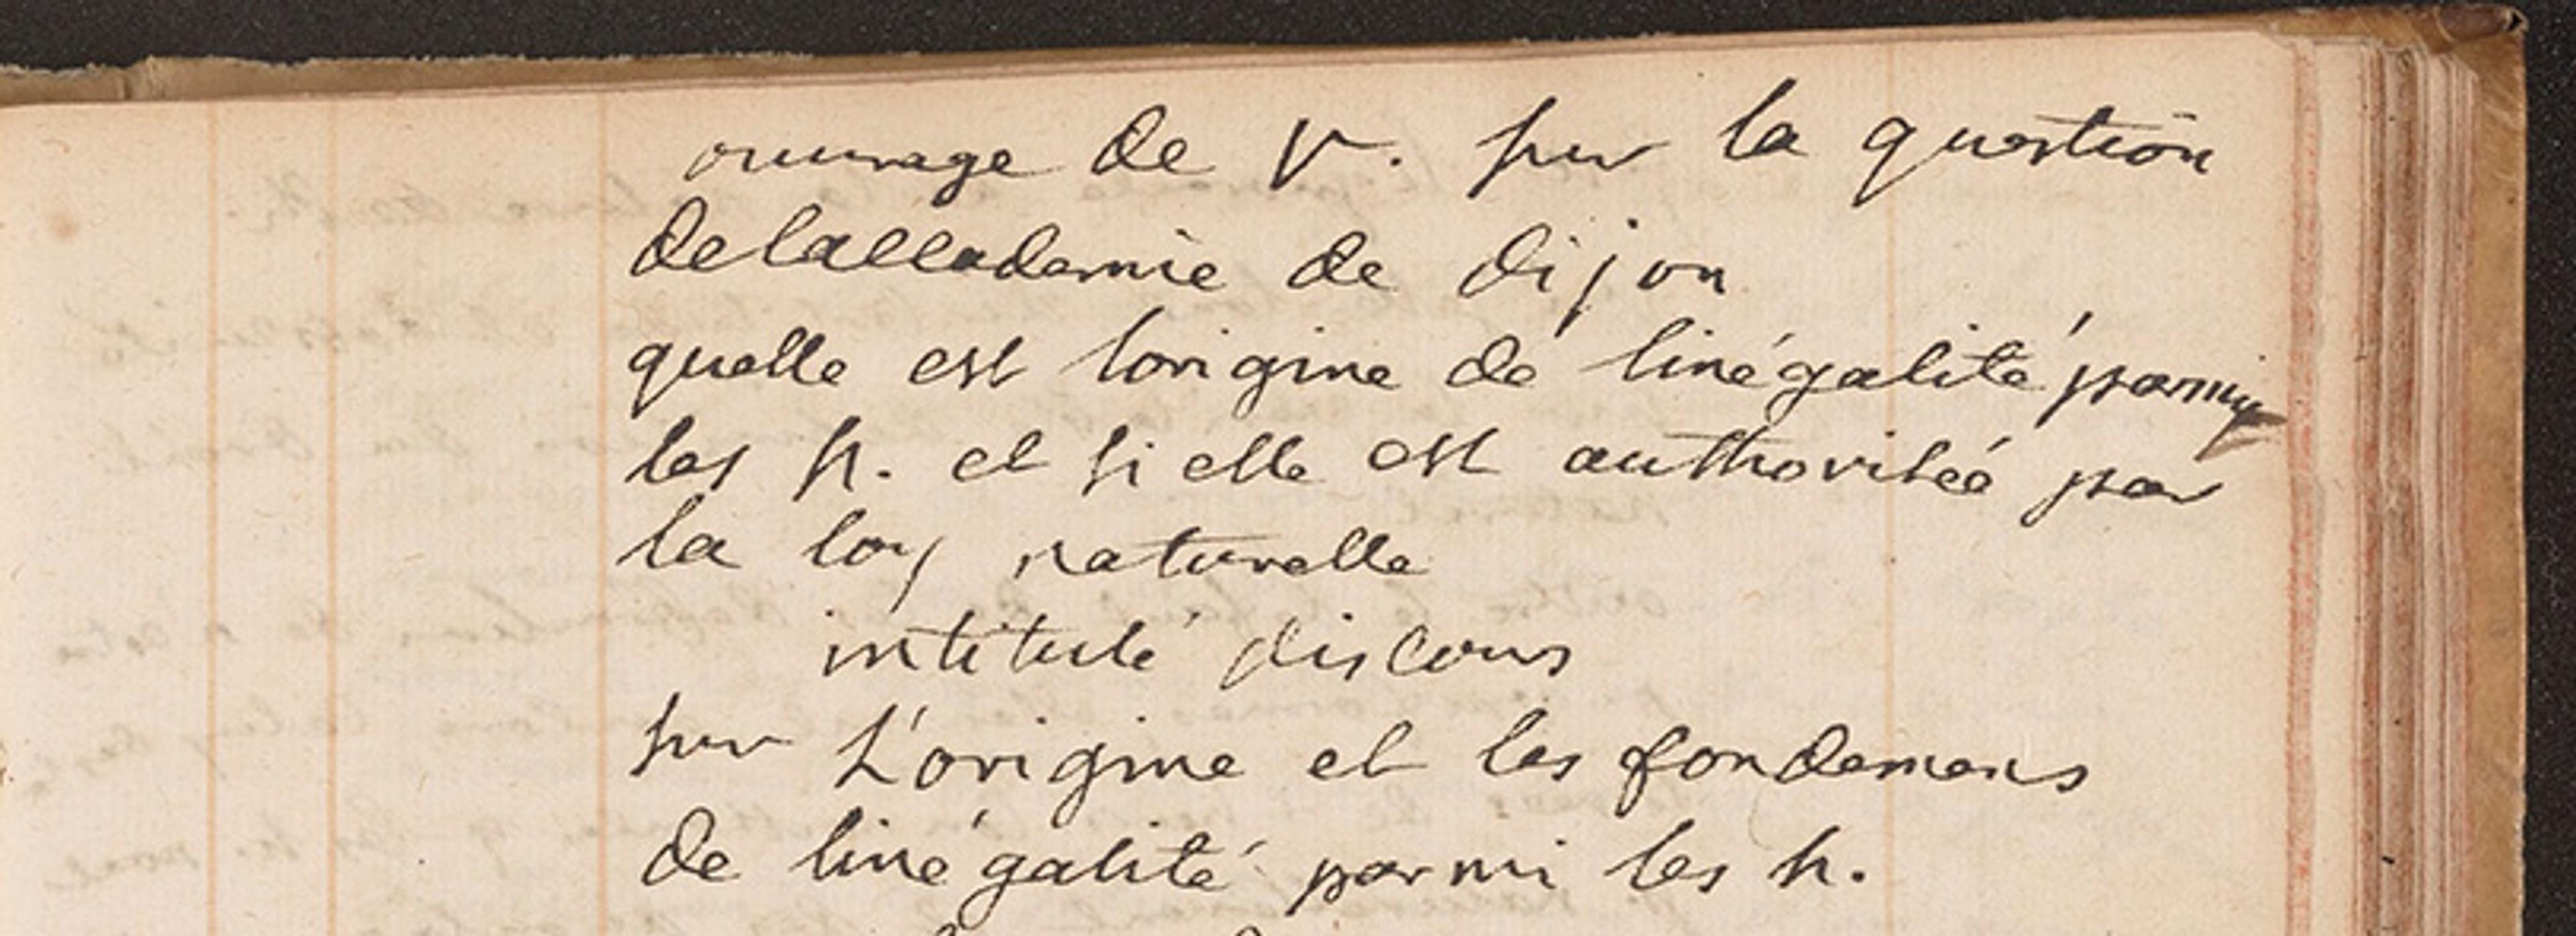 ouvrage de V. sur la question
de laccademie de dijon
quelle est lorigine de linégalité parmy
les h. et si elle est authorisée par
la loy naturelle
intitulé discours
sur L'origine et les fondemens
de linégalité parmi les h.